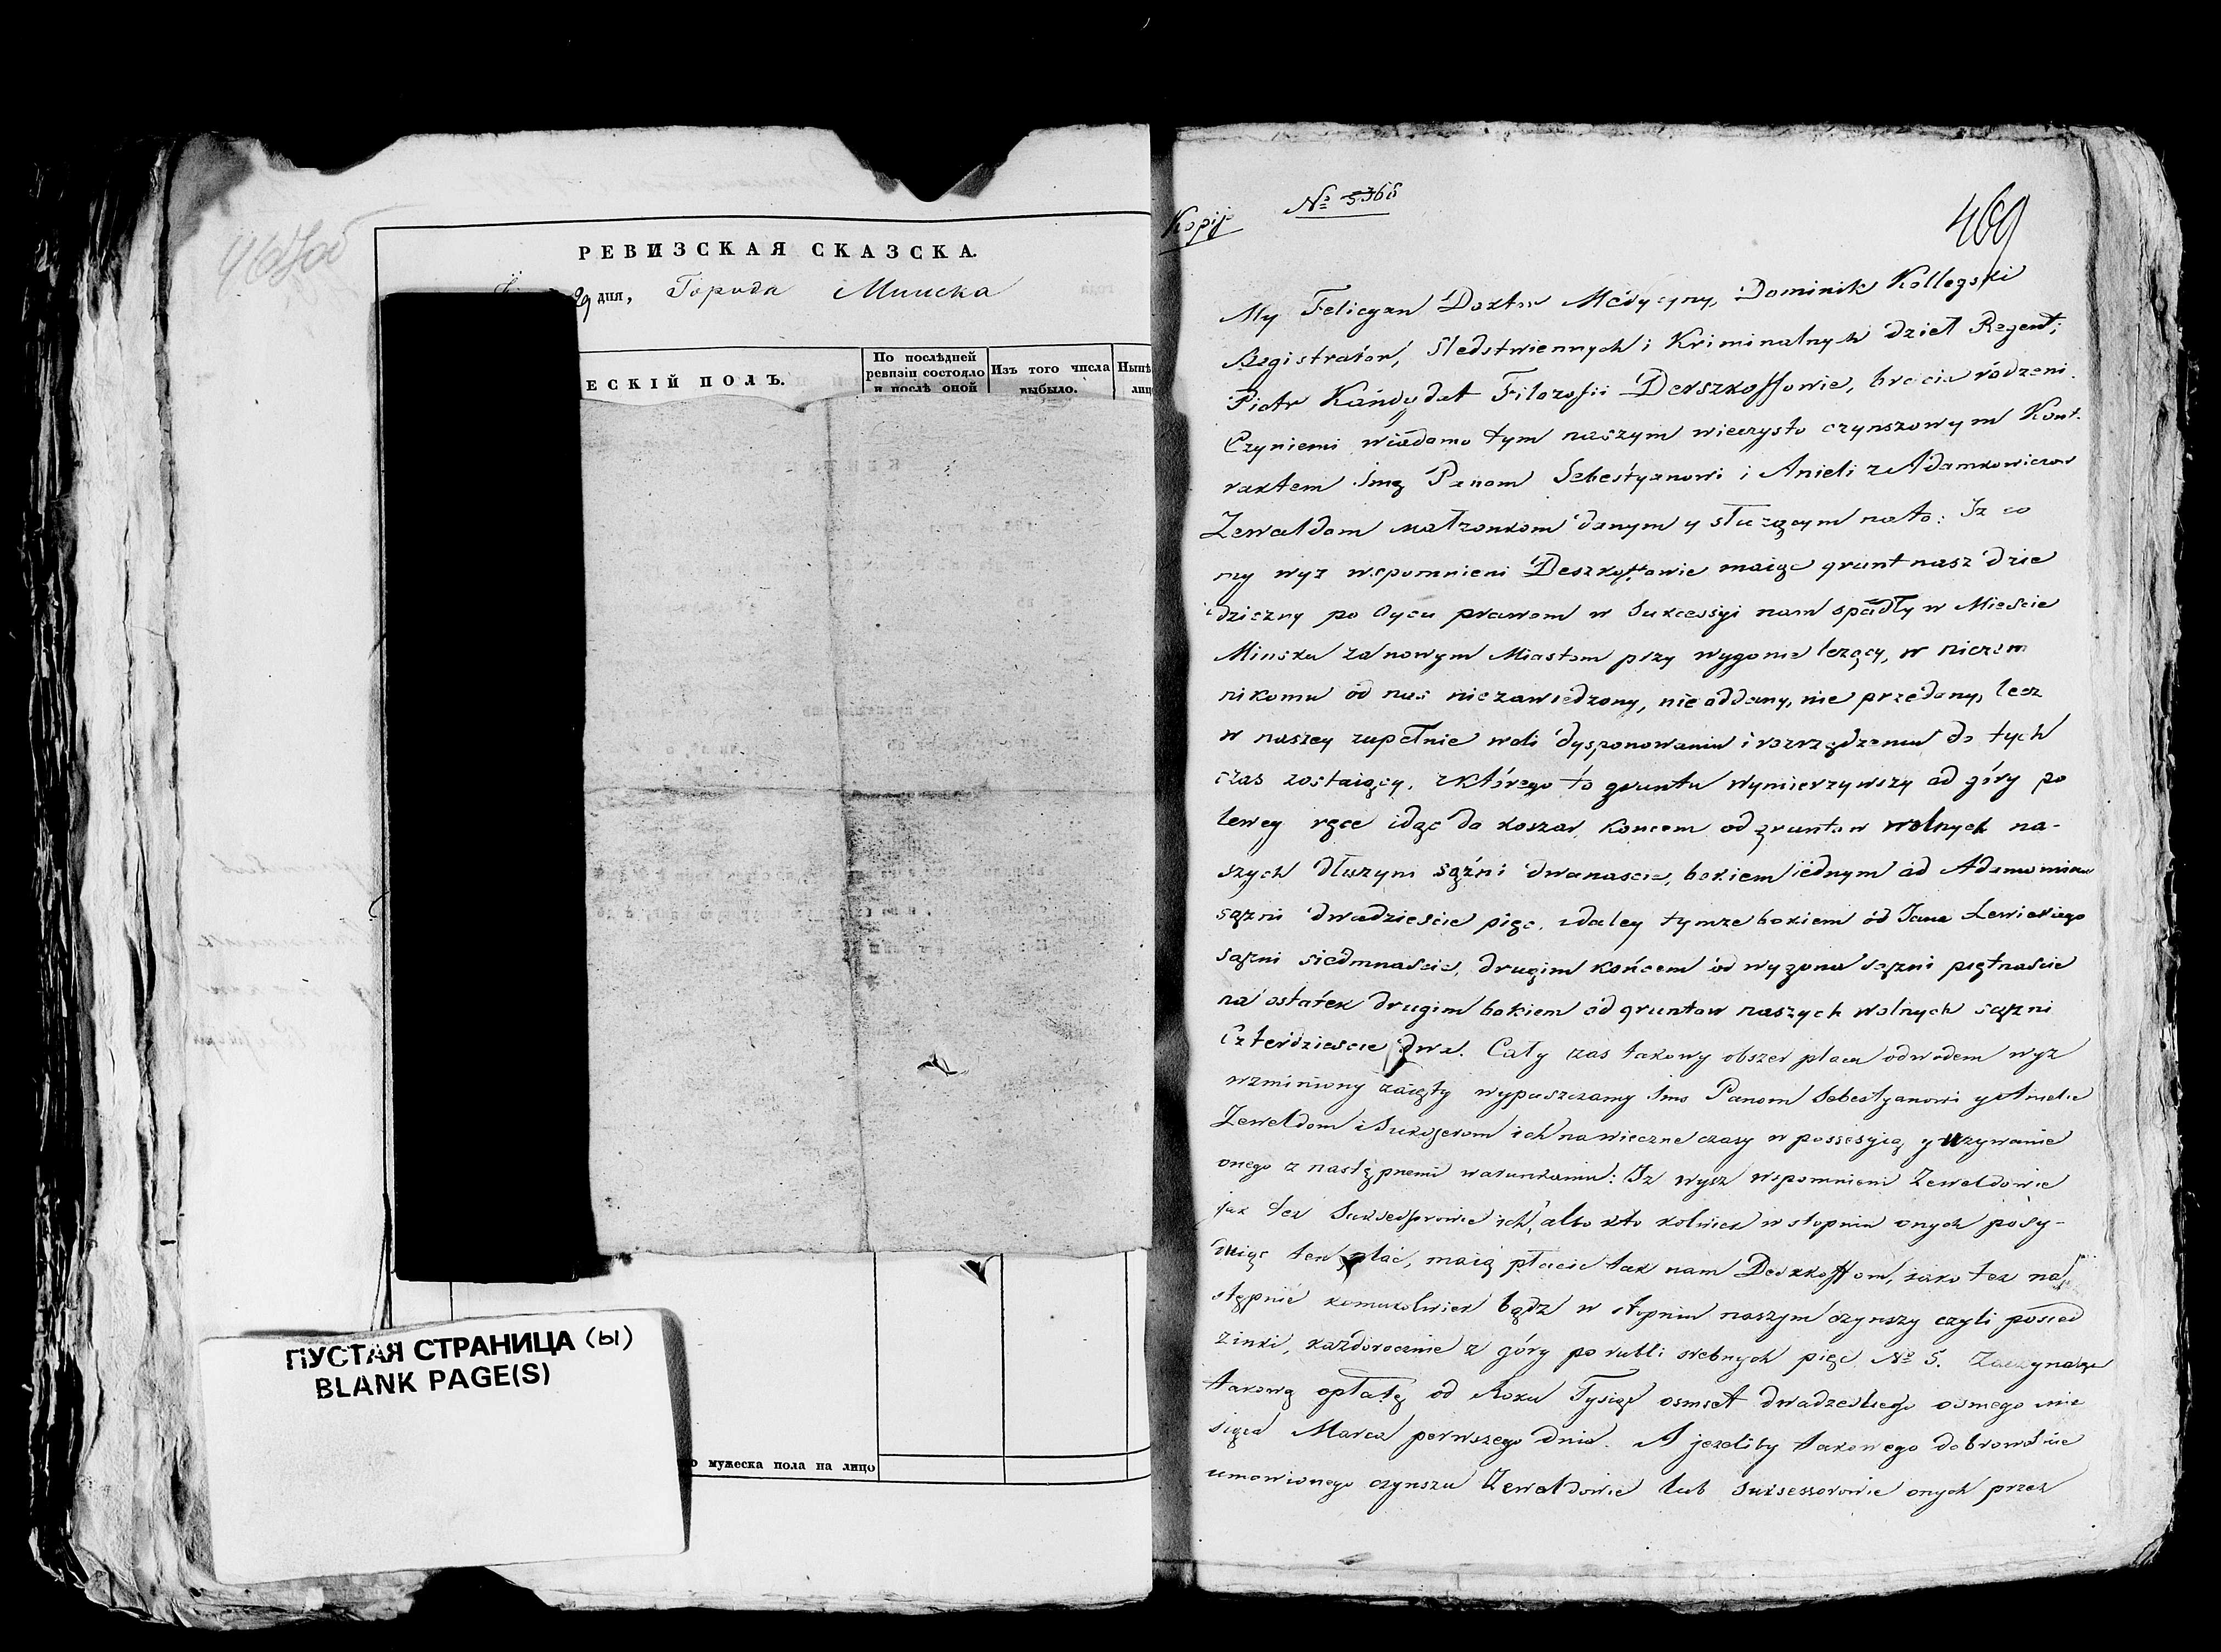 468об
РЕВИЗСКАЯ СКАЗСКА.
дня, Города Минска
ЕСКІЙ ПОЛЪ.
По послѣдней
ревизіи состояло
и послѣ оной
Изъ того числа
выбыло.
мужеска пола на лицо
ПУСТАЯ СТРАНИЦА (Ы)
BLANK PAGE(S)
Kopij
№ 5366
469
My Felicyan Doktor Medycyny, Dominik Kollegski
Registrator, Sledstwiennych i Kriminalnych dzieł Regent;
Piotr Kandydat Filozofii Derszkoffowie, bracia ródzeni.
Czyniemi wiadomo tym naszym wieczysto czynszowym Kont-
raktem Jmę Panom Sebestyanowi i Anieli z Adamkowiczow
Zewaldom małzonkom danym y słuzącym na to: Iz co
my wyz wspomnieni Deszkoffowie maiąc grunt nasz dzie
dziczny po Oycu prawem w Sukcessyi nam spadły w Mieście
Minsku za nowym Miastem przy wygonie lezący, w niczem
nikomu od nas niezawiedzony, nie oddany, nie przedany, lecz
w naszey zupełnie woli dysponowaniu i rozrządzeniu do tych
czas zostaiący, z którego to gruntu wymierzywszy od góry po
lewey ręce idąc do koszar, koncem od gruntow wolnych na-
szych dłuzyni sązni dwanascie, bokiem iednym od
sązni dwadzieście pięc, i daley tymze bokiem od Jana Lewickiego
sązni siedmnaście, drugim końcem od wygonu sązni piętnaście
na ostatek drugim bokiem od gruntow naszych wolnych sązni
Czterdzieście dwa. Cały zas takowy obszer placu odwodem wyz
wzminiony zaięty wypuszczamy Jmo Panom Sebestyanowi y Anieli
Zewaldom i Suksesorom ich na wieczne czasy w possesyią y uzywanie
onego z następnemi warunkami: Iz wysz wspomnieni Zewaldowie
jak tez Suksessorowie ich, albo kto kolwiek w stopniu onych posy-
duiąc ten plac, maią płacic tak nam Deszkoffom, iako tez na
stępnie komukolwiek bądz w stopniu naszym czynszy czyli posied
zinki, kazdorocznie z góry po rubli srebnych pięc № 5. Zaczynaiąc
takową opłatę od Roku Tysiąc osmset dwadzestiego osmego mie
siąca Marca perwszego dnia. A jezeliby takowego dobrowolnie
umowionego czynszu Zewaldowie lub suksessorowie onych przez